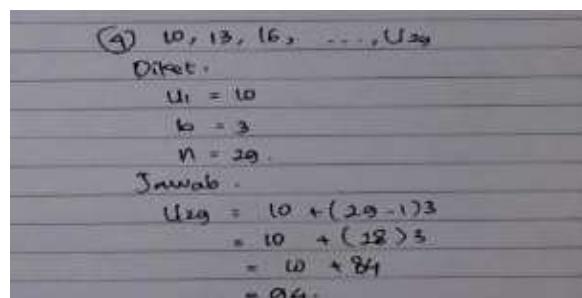 ④ 10, 13, 16, ...., U29
Diket.
U1 = 10
b = 3
n = 29.
Jawab.
U29 = 10 + (29-1)3
= 10 + (28)3
= 10 + 84
= 94.